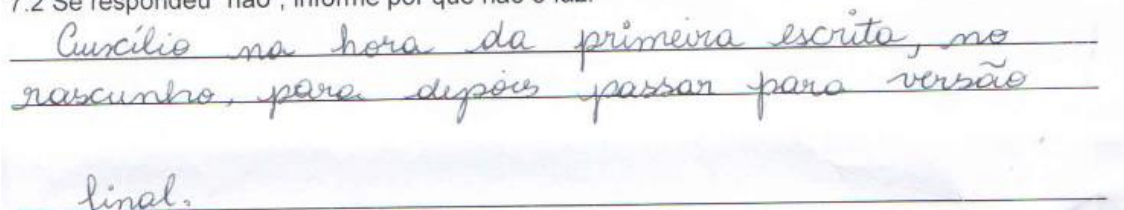 7.2 Se respondeu "não", informe por que não o faz.
Auxílio na hora da primeira escrita, no
rascunho, para depois passar para versão
final.